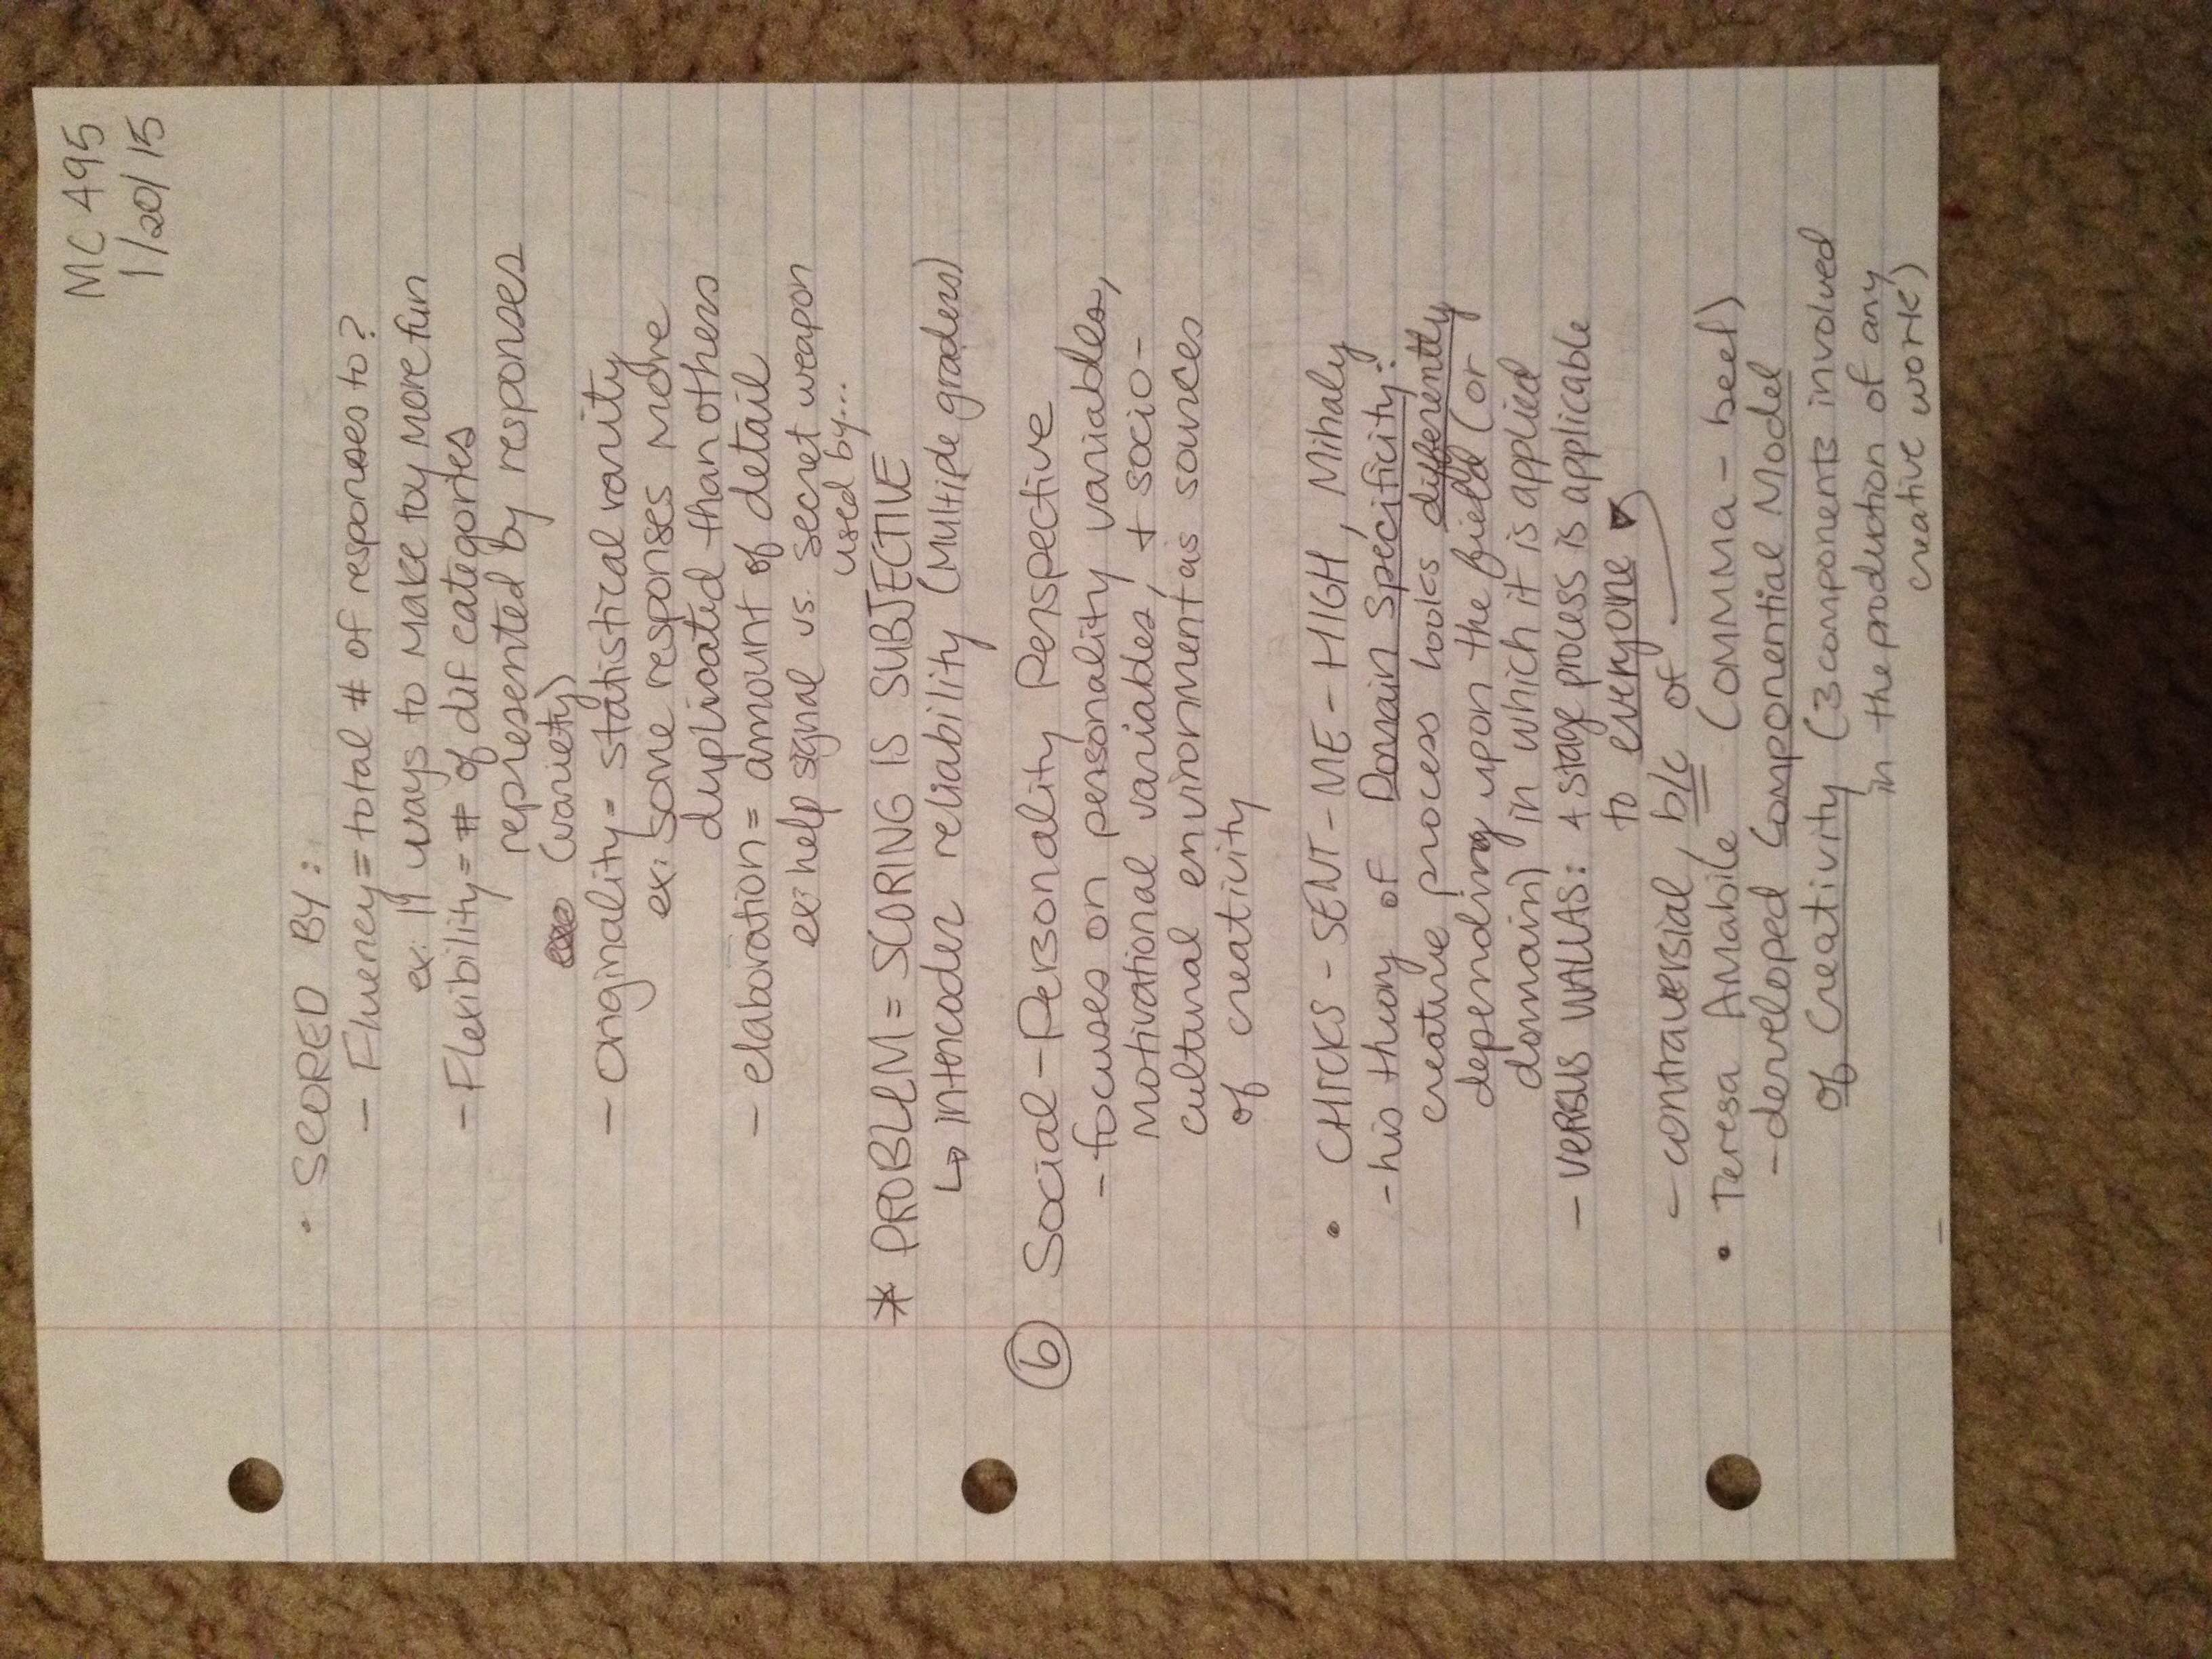 MC 495
1/20/15
• SCORED BY:
- Fluency = total # of responses to?
ex: 19 ways to make toy more fun
- Flexibility = # of dif categories
represented by responses
(variety)
- originality = statistical rarity
ex: some responses more
duplicated than others
- elaboration = amount of detail
ex: help signal vs. secret weapon
used by...
* PROBLEM = SCORING IS SUBJECTIVE
↳ intercoder reliability (Multiple graders)
(b) Social-Personality Perspective
- focuses on personality variables,
motivational variables, + socio-
cultural environment as sources
of creativity
• CHICKS-SENT-ME-HIGH, Mihaly
- his theory of Domain Specificity:
creative process looks differently
depending upon the field (or
domain) in which it is applied
- VERSUS WALLAS: 4 stage process is applicable
to everyone
- contraversial, b/c of
• Teresa Amabile (OMMA-beel)
- developed Componential Model
of Creativity (3 components involved
in the production of any
creative work)